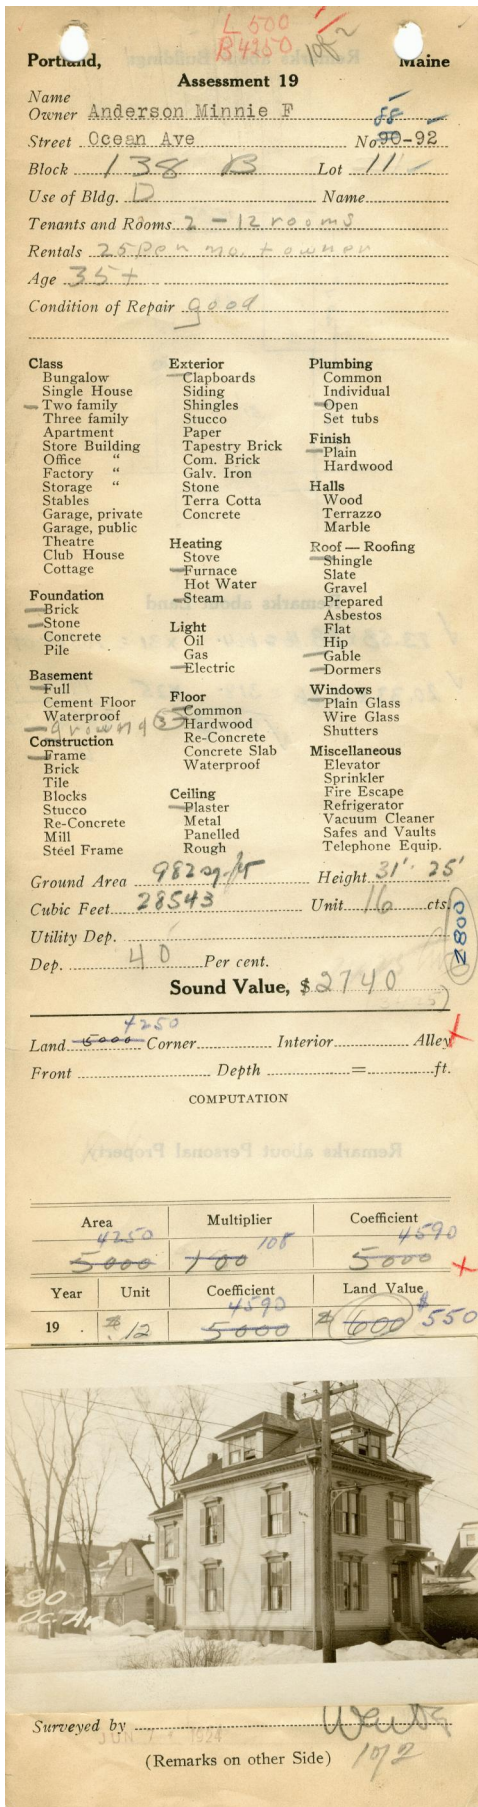 L 500
B 4250
1 of 2
Portland, Maine
Assessment 19
Name
Owner Anderson Minnie F
88
Street Ocean Ave No 90-92
Block 138 B Lot 11
Use of Bldg. D Name
Tenants and Rooms 2 - 12 rooms
Rentals 25 per mo. + owner
Age 35+
Condition of Repair good
Class
Bungalow
Single House
Two family
Three family
Apartment
Store Building
Office "
Factory "
Storage "
Stables
Garage, private
Garage, public
Theatre
Club House
Cottage
Foundation
Brick
Stone
Concrete
Pile
Basement
Full
Cement Floor
Waterproof
ground
Construction
Frame
Brick
Tile
Blocks
Stucco
Re-Concrete
Mill
Steel Frame
Exterior
Clapboards
Siding
Shingles
Stucco
Paper
Tapestry Brick
Com. Brick
Galv. Iron
Stone
Terra Cotta
Concrete
Heating
Stove
Furnace
Hot Water
Steam
Light
Oil
Gas
Electric
Floor
Common
3 Hardwood
Re-Concrete
Concrete Slab
Waterproof
Ceiling
Plaster
Metal
Panelled
Rough
Plumbing
Common
Individual
Open
Set tubs
Finish
Plain
Hardwood
Halls
Wood
Terrazzo
Marble
Roof — Roofing
Shingle
Slate
Gravel
Prepared
Asbestos
Flat
Hip
Gable
Dormers
Windows
Plain Glass
Wire Glass
Shutters
Miscellaneous
Elevator
Sprinkler
Fire Escape
Refrigerator
Vacuum Cleaner
Safes and Vaults
Telephone Equip.
Ground Area 982 sq. ft Height 31' · 25'
Cubic Feet 28543 Unit 16 cts.
Utility Dep.
2800
Dep. 40 Per cent.
Sound Value, $ 2740
4250
Land 5000 Corner Interior Alley
Front Depth = ft.
COMPUTATION
Remarks about Personal Property
Area Multiplier Coefficient
4250 108 4590
5000 100 5000
Year Unit Coefficient Land Value
4590 $550
19 $ .12 5000 $ 600
90
Oc. Av
Surveyed by
JUN 1924
(Remarks on other Side)
1 of 2